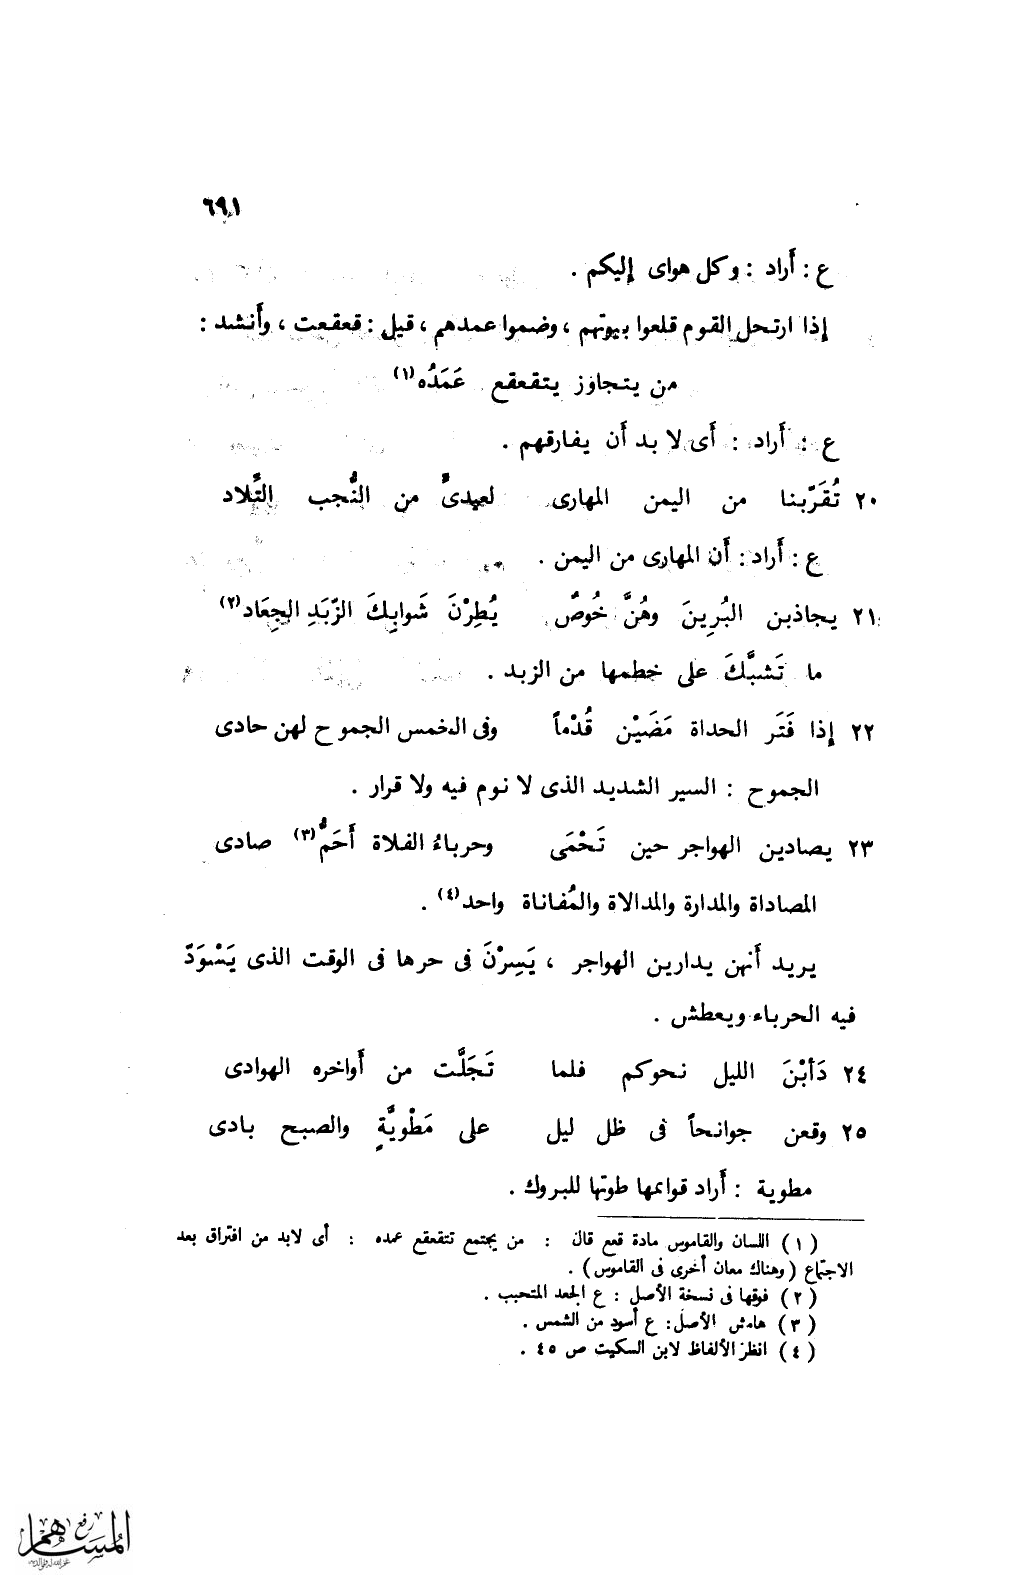 ٦٩١
ع : أَراد : وكل هواى إليكم .
إذا ارتحل القوم قلعوا بيوتهم ، وضموا عمدهم ، قيل : قعقعت ، وأَنشد :
من يتجاوز يتقعقع عَمَدُه (١)
ع : أَراد : أَى لا بد أَن يفارقهم .
٢٠ تُقَرّبنا من اليمن المهارى لعيدىٍّ من النُّجب التِّلاد
ع : أَراد : أَن المهارى من اليمن .
٢١ يجاذبن البُرِينَ وهُنَّ خُوصٌ يُطِرْنَ شَوابِكَ الزّبَدِ الجِعَاد (٢)
ما تَشبَّكَ على خطمها من الزبد .
٢٢ إذا فَتَر الحداة مَضَيْن قُدْماً وفى الخمس الجموح لهن حادى
الجموح : السير الشديد الذى لا نوم فيه ولا قرار .
٢٣ يصادين الهواجر حين تَحْمَى وحرباءُ الفلاة أَحَمُّ (٣) صادى
المصاداة والمدارة والمدالاة والمُفاناة واحد (٤) .
يريد أَنهن يدارين الهواجر ، يَسِرْنَ فى حرها فى الوقت الذى يَسْوَدّ
فيه الحرباء ويعطش .
٢٤ دَأبْنَ الليل نحوكم فلما تَجَلَّت من أَواخره الهوادى
٢٥ وقعن جوانحاً فى ظل ليل على مَطْوِيَّةٍ والصبح بادى
مطوية : أَراد قوائمها طوتها للبروك .
( ١ ) اللسان والقاموس مادة قعع قال : من يجتمع تتقعقع عمده : أى لابد من افتراق بعد
الاجتماع ( وهناك معان أخرى فى القاموس ) .
( ٢ ) فوقها فى نسخة الأصل : ع الجعد المتحبب .
( ٣ ) هامش الأصل : ع أسود من الشمس .
( ٤ ) انظر الألفاظ لابن السكيت ص ٤٥ .
رفع
المساهم